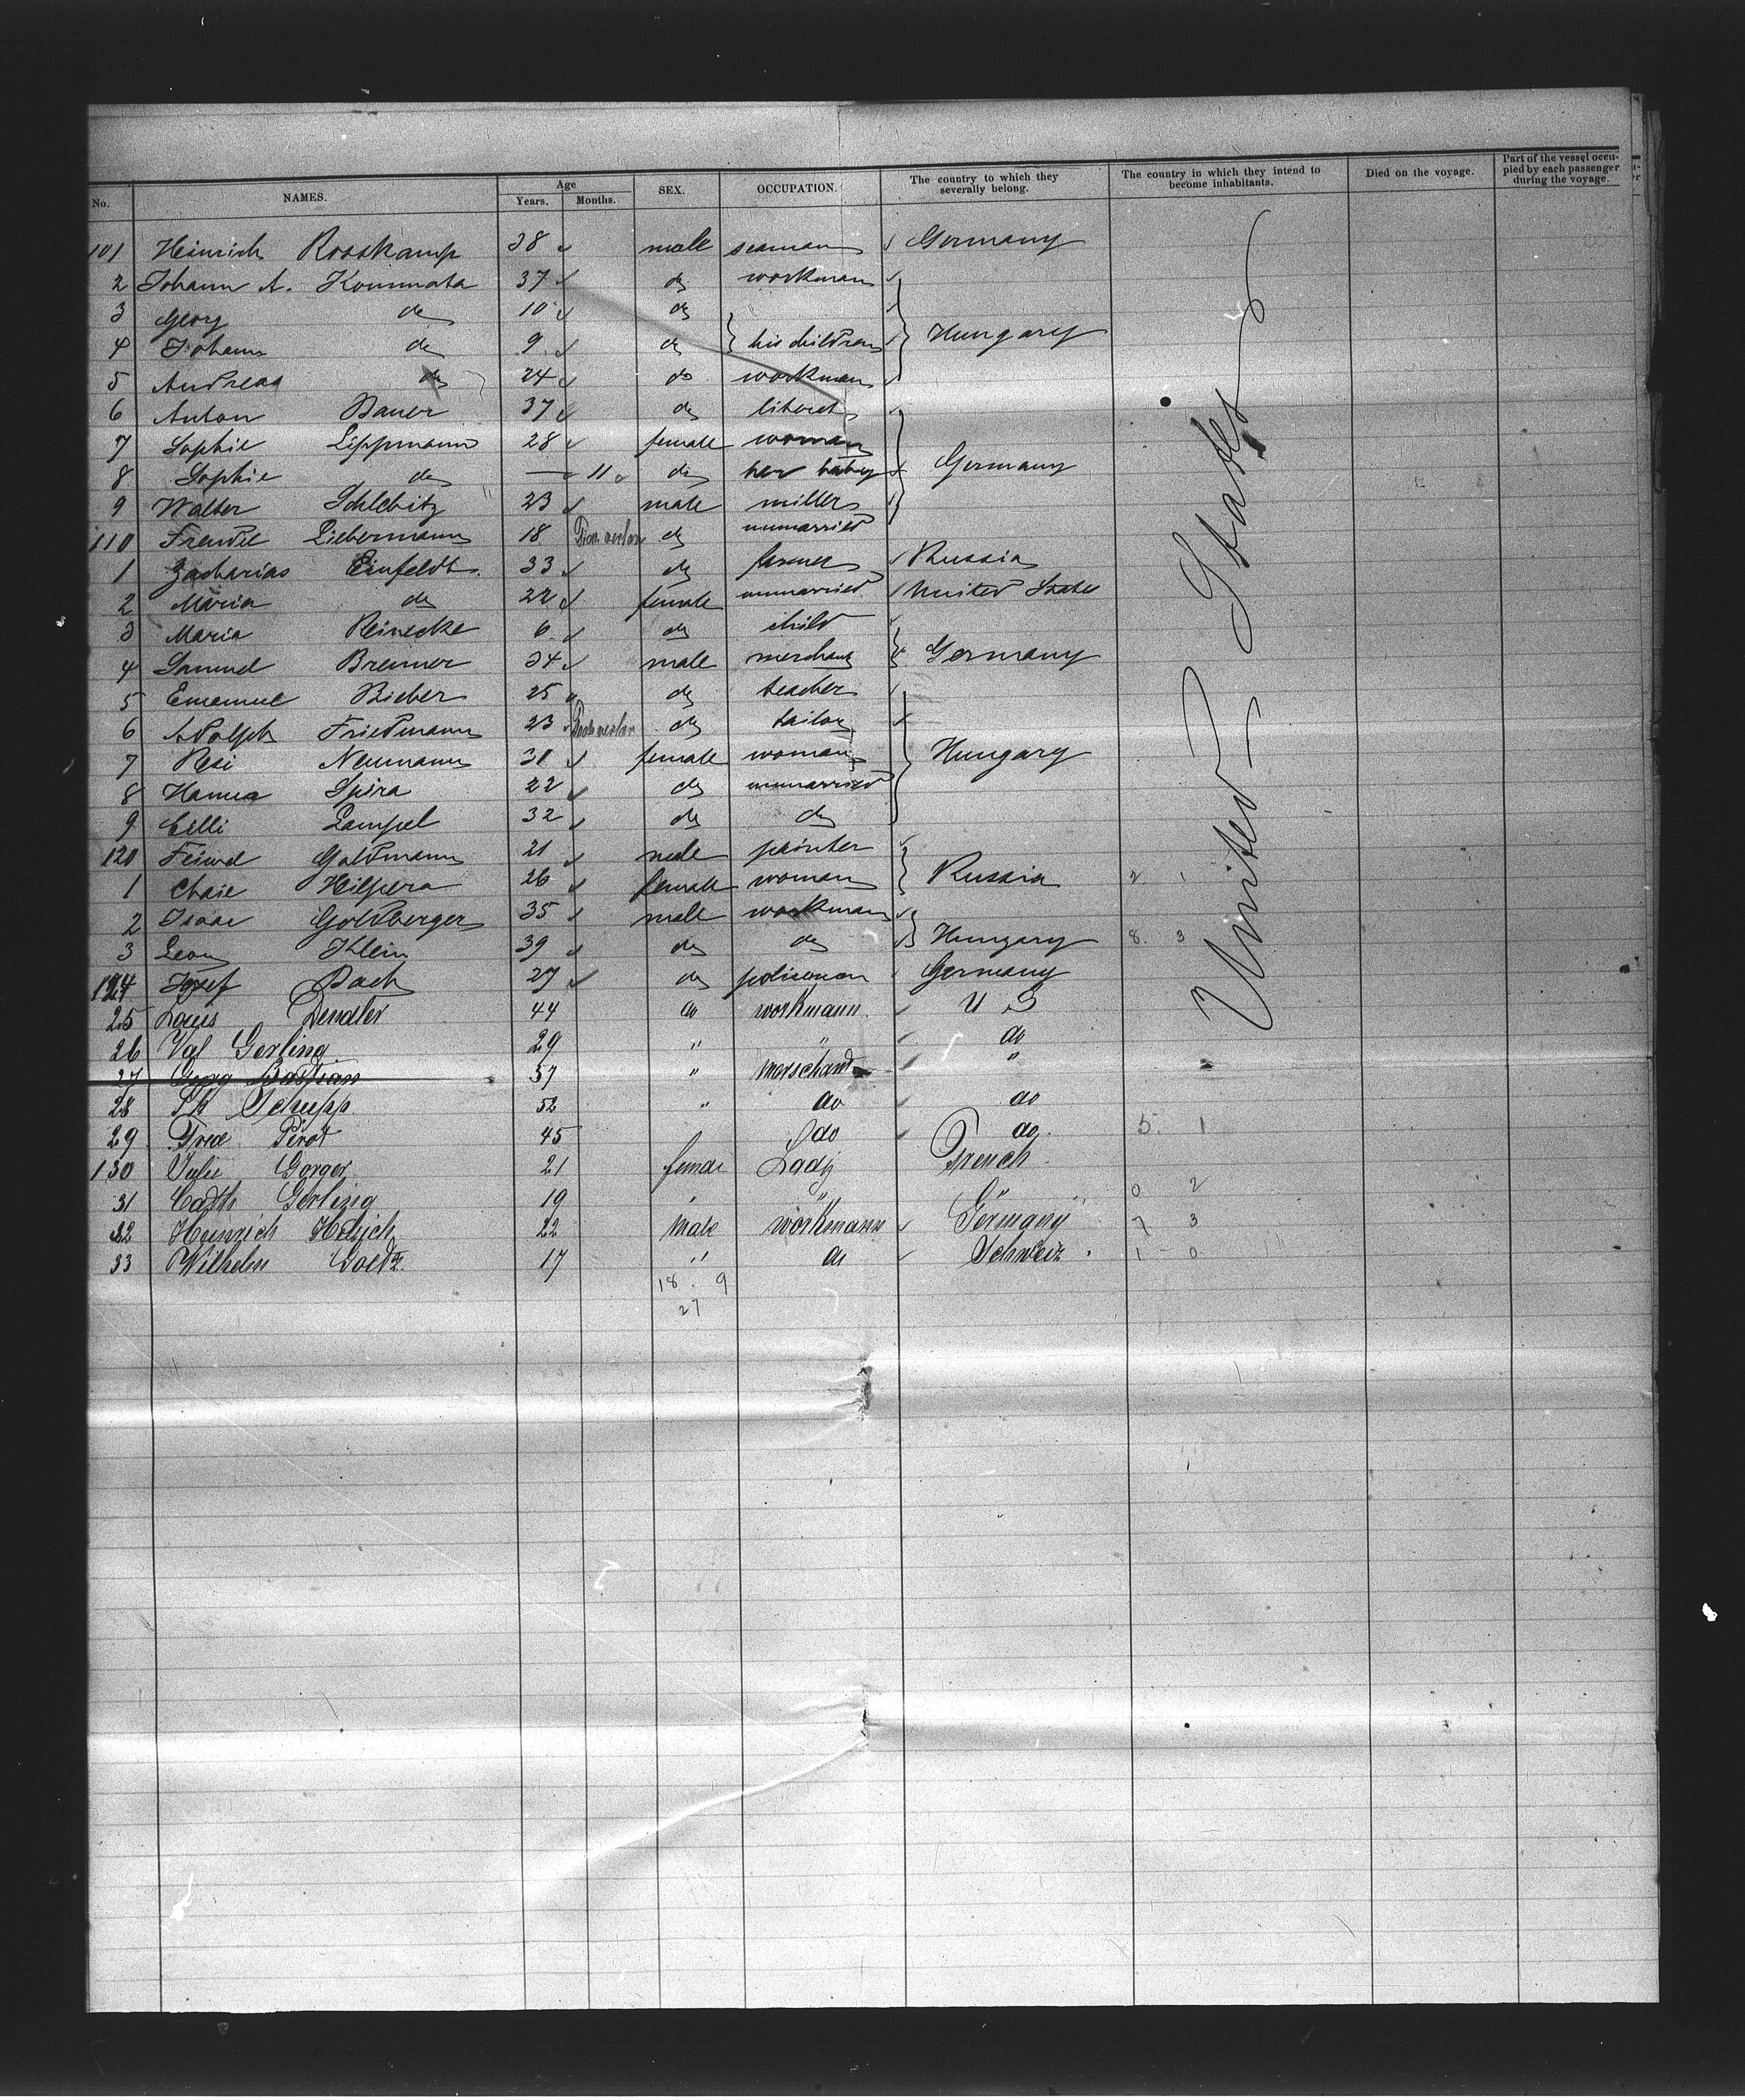 No. NAMES. Age Years. Months. SEX. OCCUPATION. The country to which they severally belong. The country in which they intend to become inhabitants. Died on the voyage. Part of the vessel occupied by each passenger during the voyage.
101 Heinrich Rooskamp 38 male seaman Germany
2 Johann A. 37 do workman
3 Georg do 10 do
4 Johann do 9 do his children Hungary
5 Andreas do 24 do workman
6 Anton Bauer 37 do
7 Sophie Lippmann 28 female woman
8 Sophie do — 11 do her baby Germany
9 Walter Schlebitz 23 male miller
110 Liebermann 18 do unmarried
1 Zacharias Einfeldt. 33 do farmer Russia
2 Maria do 22 female unmarried United States
3 Maria Reinecke 6 do child
4 Samuel Brenner 34 male merchant Germany
5 Emanuel Bieber 25 do teacher
6 Adolph Friedmann 23 do tailor
7 Resi Neumann 30 female woman Hungary
8 Hanna Spira 22 do unmarried
9 Cilli Lampel 32 do do
120 Feiwel Goldmann 21 male painter
1 Chaie Hilpera 26 female woman Russia 2. 1
2 Isaac Goldberger 35 male workman
3 Leon Klein 39 do do Hungary 8. 3
124 Josef Bach 27 do policeman Germany
25 Louis Dendler 44 do workmann. U S
26 Val Gerling 29 " " do
27 Georg Bastian 57 " merschand "
28 Schupp. 52 " do do
29 Fred Pirot 45 do do. 5. 1
130 Julie Gorger 21 female Lady French
31 Cath Gerling 19 " " " 0 2
32 Heinrich 22 male workmann Germany 7 3
33 Wilhelm Goetz. 17 " do Schweiz. 1 - 0
18. 9
27
United States